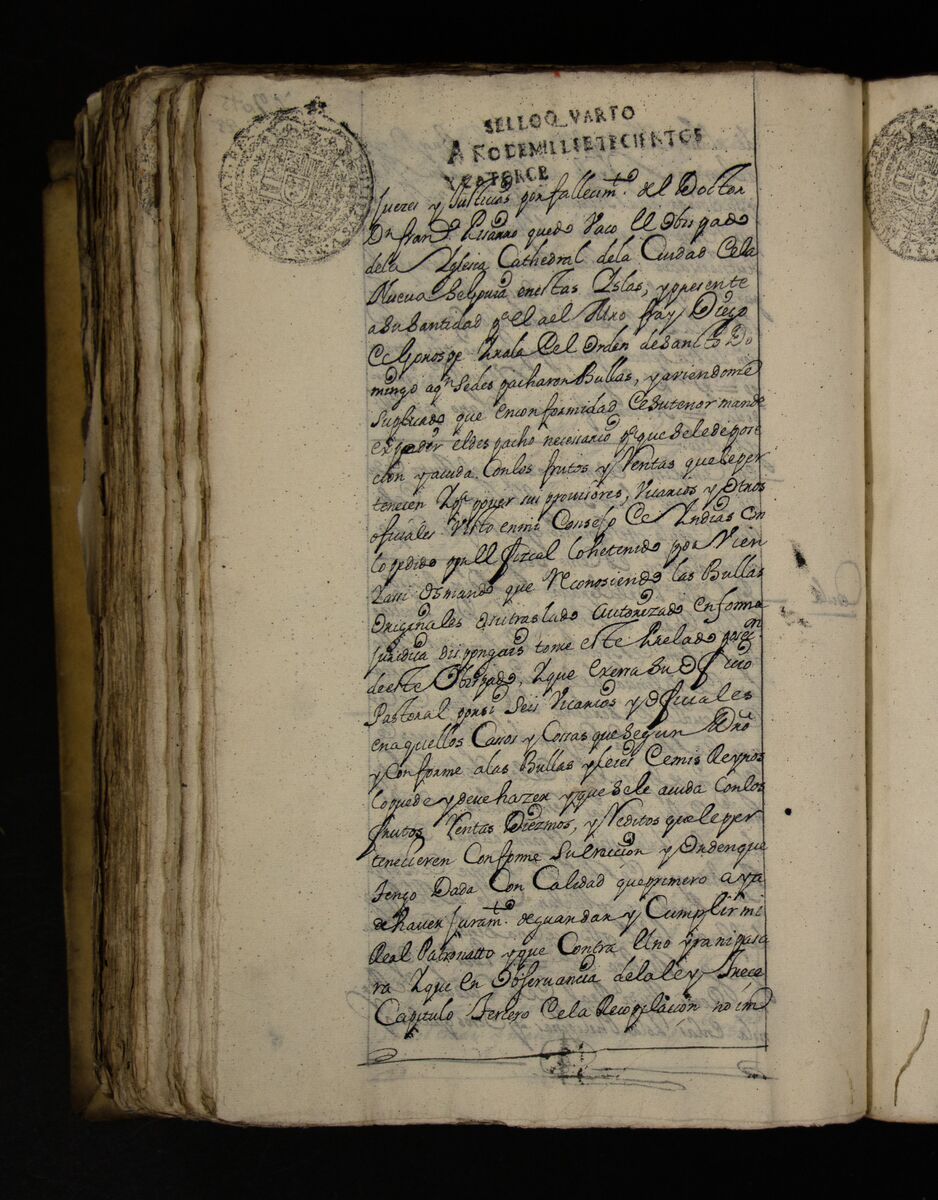 SELLO QVARTO
AÑO DE MIL SETECIENTOS
Y CATORCE
Juezes y Justicias por fallecimto. del Doctor
Dn. fran.co Pisarro quedo Vaco el Obispado
dela Yglesia Cathedral dela Ciudad de la
Nueva Segovia en estas Yslas, y presente
a Su Santidad pa. el al Mro fray Diego
de Gorospe Yrala del Orden de Santo Do
mingo aqn. se des pacharon Bullas, y aviendome
suplicado que en conformidad de su tenor mande
expedir el des pacho necessario pa. que se le de pose
cion y acuda con los frutos y Rentas que le per
tenecen Y pa. poner sus provisores, Vicarios y Otros
oficiales Visto en mi Consejo de Yndias con
lo pedido por el fiscal lo he tenido por Vien
Y assi Os mando que Reconosiendo las Bullas
Originales o su traslado autorizado en forma
juridica dispongais tome este Prelado poseon.
de este Obispado, Y que exersa su Oficio
Pastoral por si sus Vicarios y oficiales
en aquellos Casos y Cossas que segun dro
y conforme a las Bullas y leies de mis Reynos
lo puede y deve hazer y que se le acuda con los
frutos Rentas Diezmos, y Reditos que le per
tenecieren Conforme su ereccion y Orden que
tengo Dada Con Calidad que primero aya
de haver juramto. de guardar y Cumplir mi
Real Patronatto y que Contra el no yra ni pasa
ra Y que en Observancia de la ley trece
Capitulo tercero de la Recopilacion no im